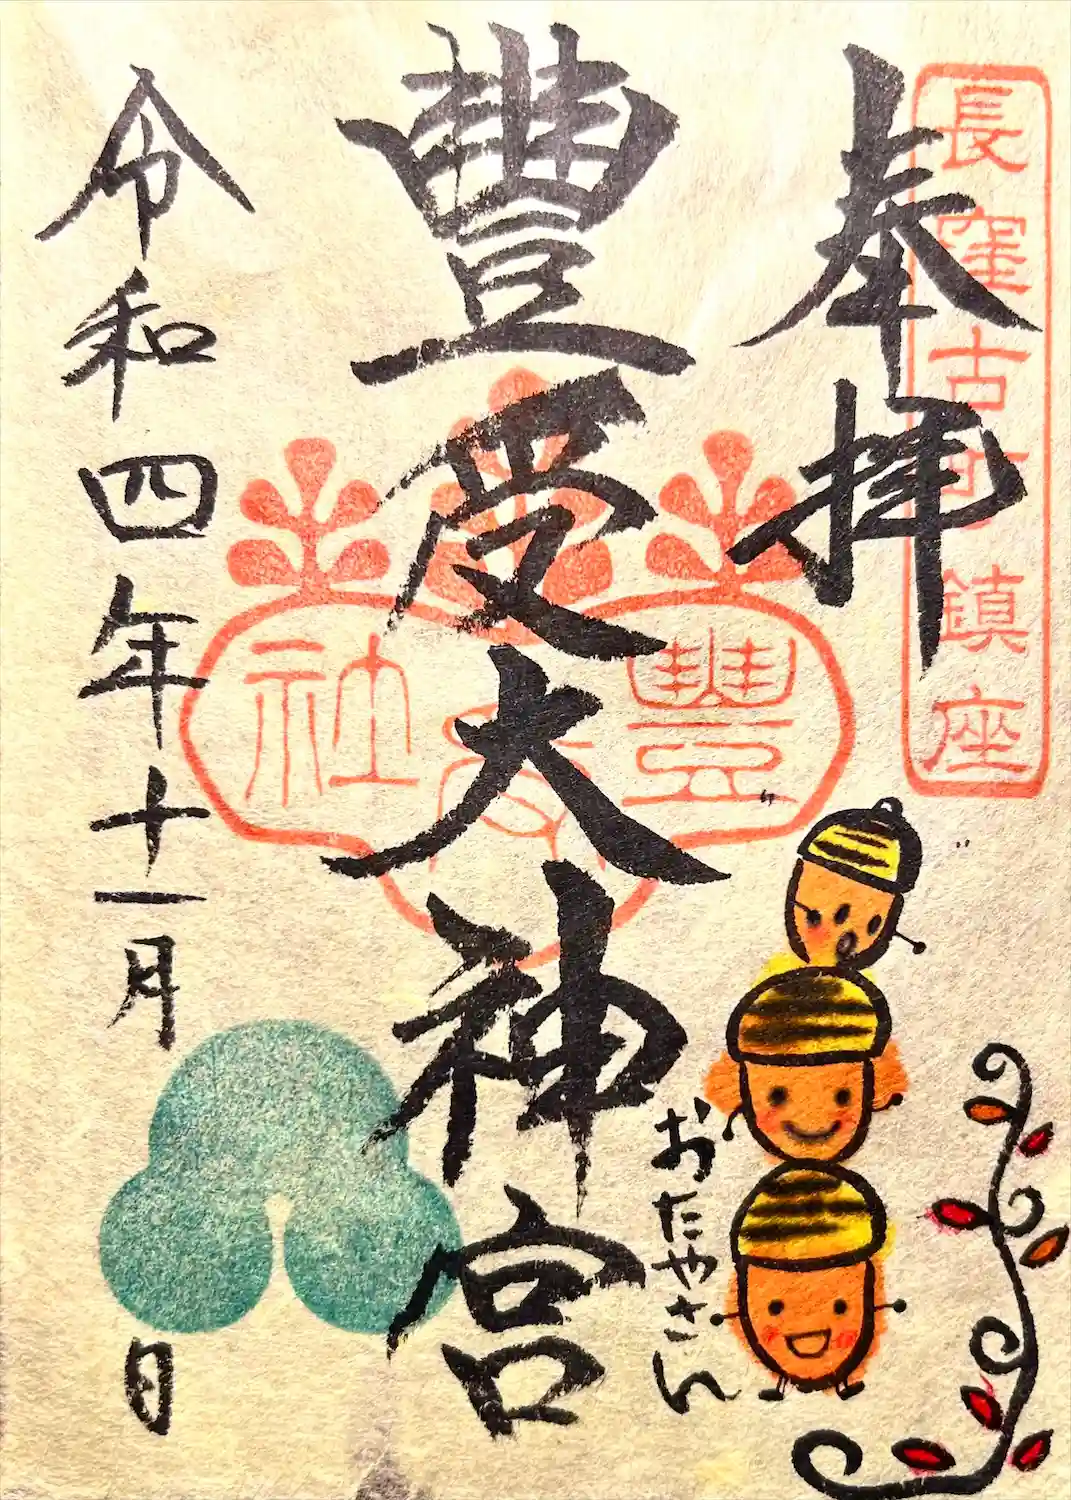 奉拝
長窪古町鎮座
豊受大神宮
豊受社
令和四年十一月 日
おたやさん